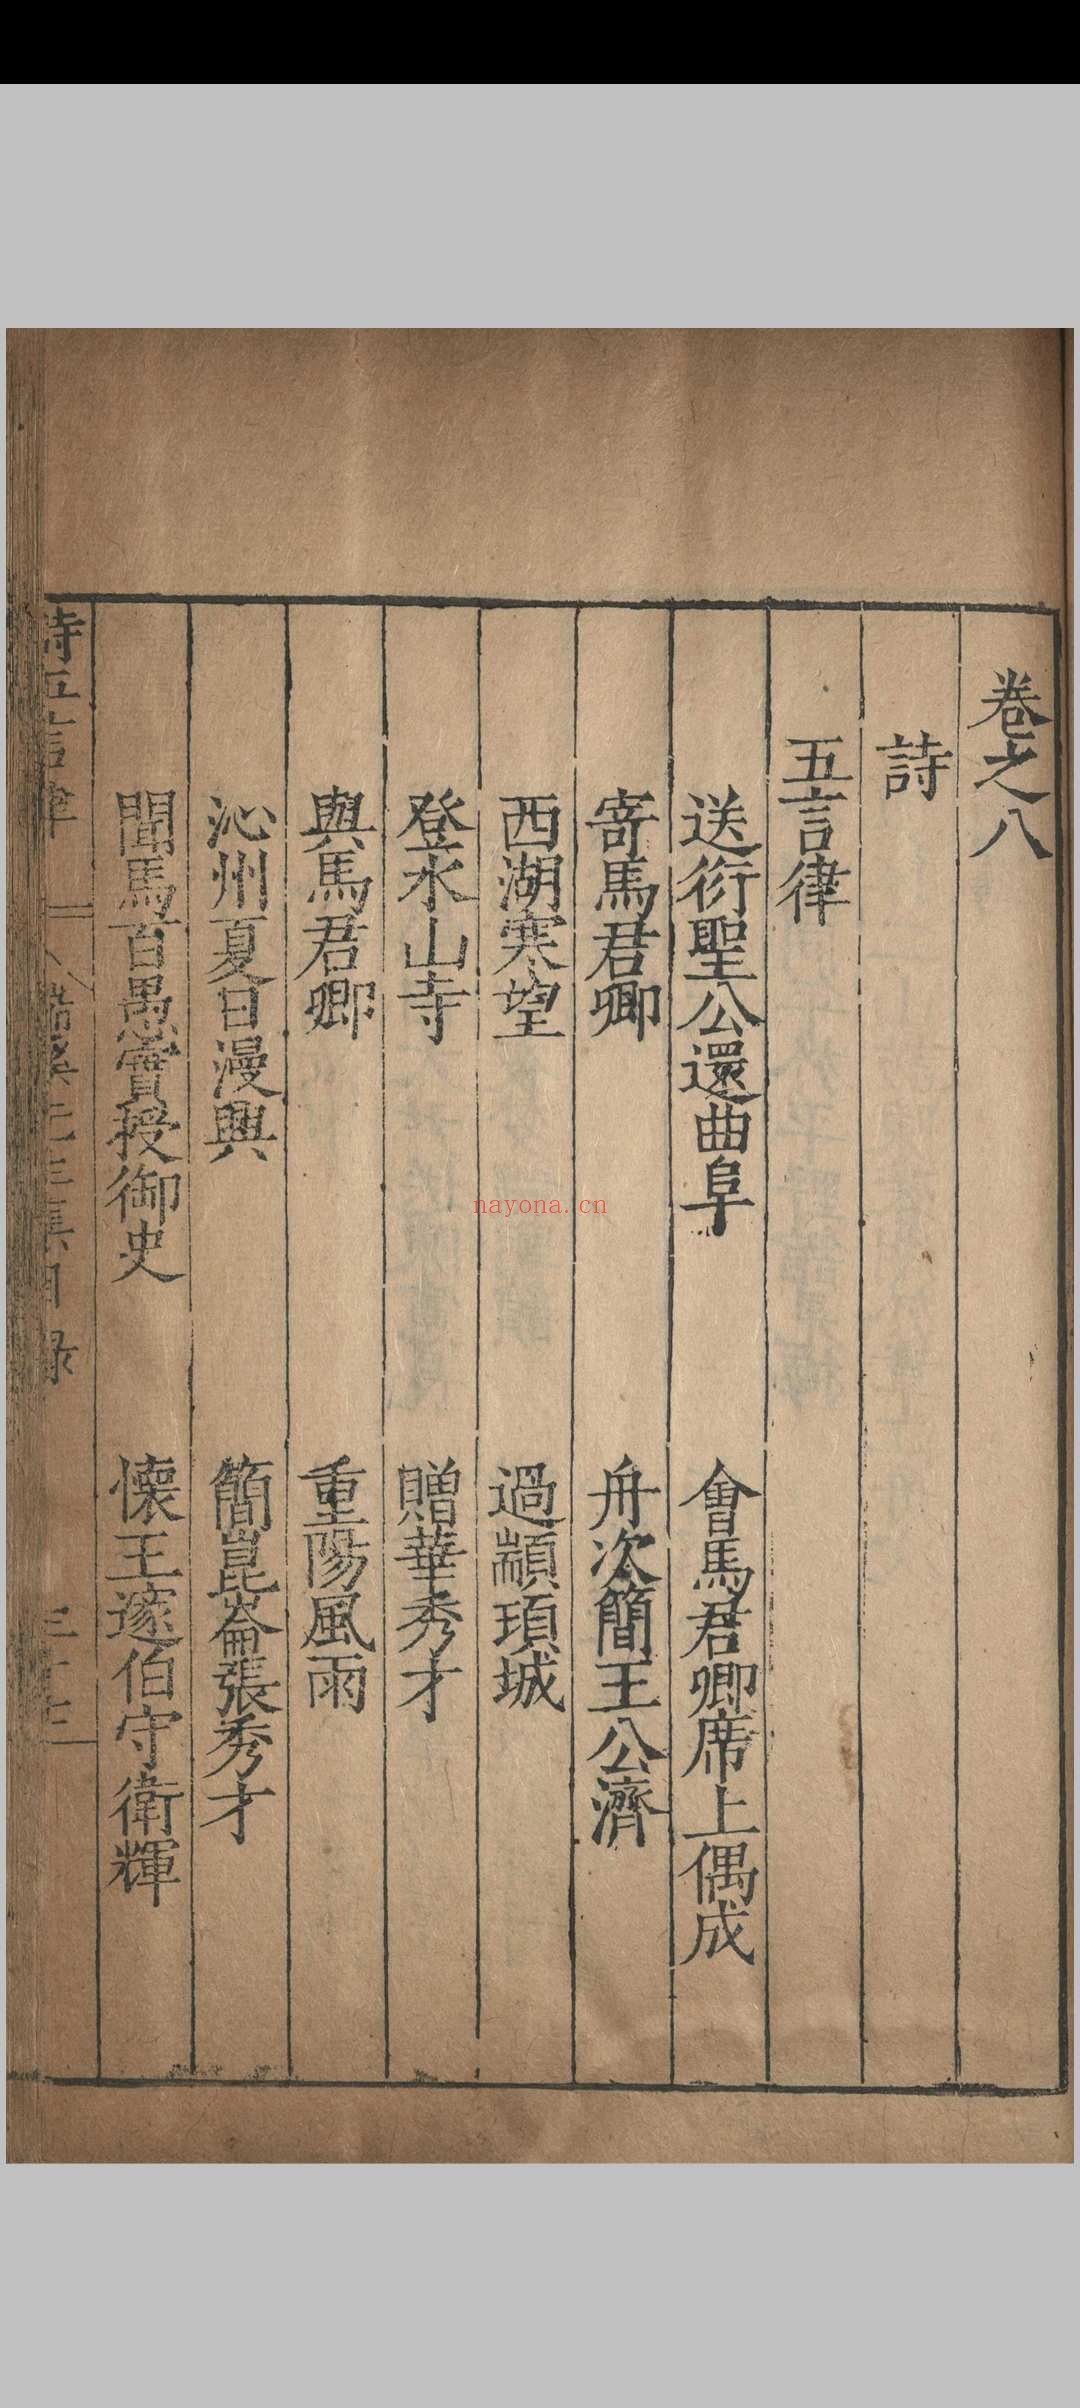 卷之八
詩
五言律
送衍聖公還曲阜
會馬君卿席上偶成
寄馬君卿
舟次簡王公濟
西湖寒望
過顓頊城
登氷山寺
贈華秀才
與馬君卿
重陽風雨
沁州夏日漫興
簡崑崙張秀才
聞馬百愚實授御史
懷王邃伯守衛輝
詩五言律
先生集目録
nayona.cn